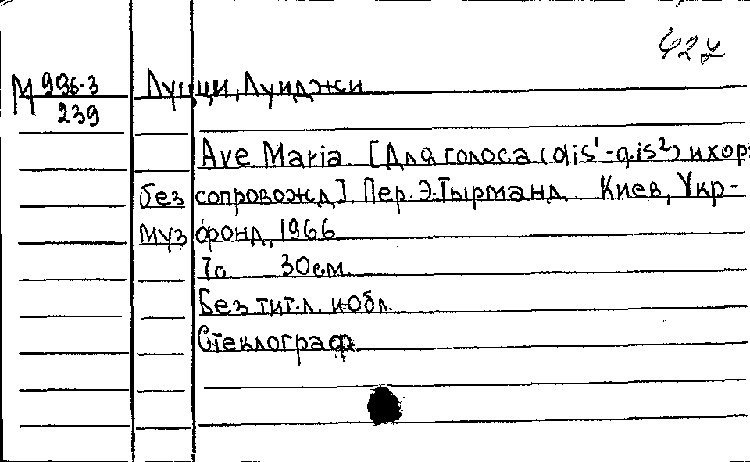 М 996-3
239
Луцци, Луиджи
Ave Maria. [Для голоса (dis¹-gis²) и хора
без сопровожд]. Пер. Э. Тырманд. Киев, Укр-
музфонд, 1966
7с 30см.
Без тит. л. и обл.
Стеклограф.